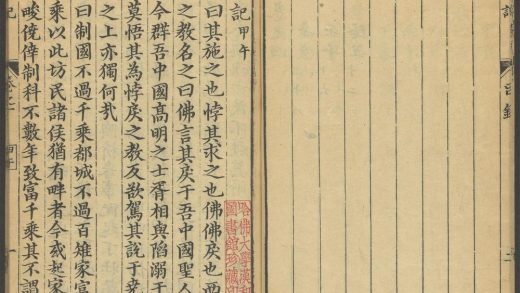 哈佛大學漢和
圖書館珍藏印
記甲午
曰其施之也悖其求之也佛佛戾也西
之教名之曰佛言其戾于吾中國聖人
今群吾中國高明之士胥相與陷溺于
莫悟其為悖戾之教反欲駕其說于堯
之上亦獨何哉
曰制國不過千乘都城不過百雉家富
乘以此坊民諸侯猶有畔者今或起家
畯僥倖制科不數年致富千乘其不謂